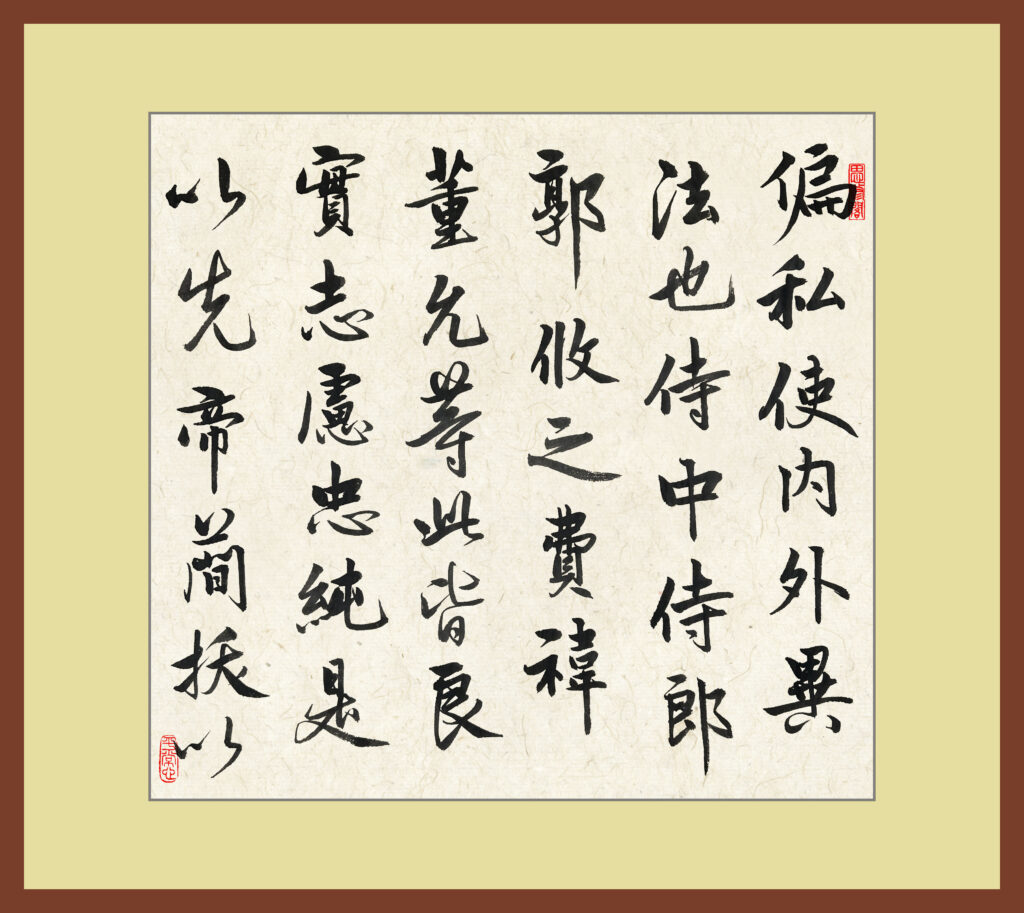 偏私使内外異
法也侍中侍郎
郭攸之費禕
董允等此皆良
實志慮忠純是
以先帝蕳拔以